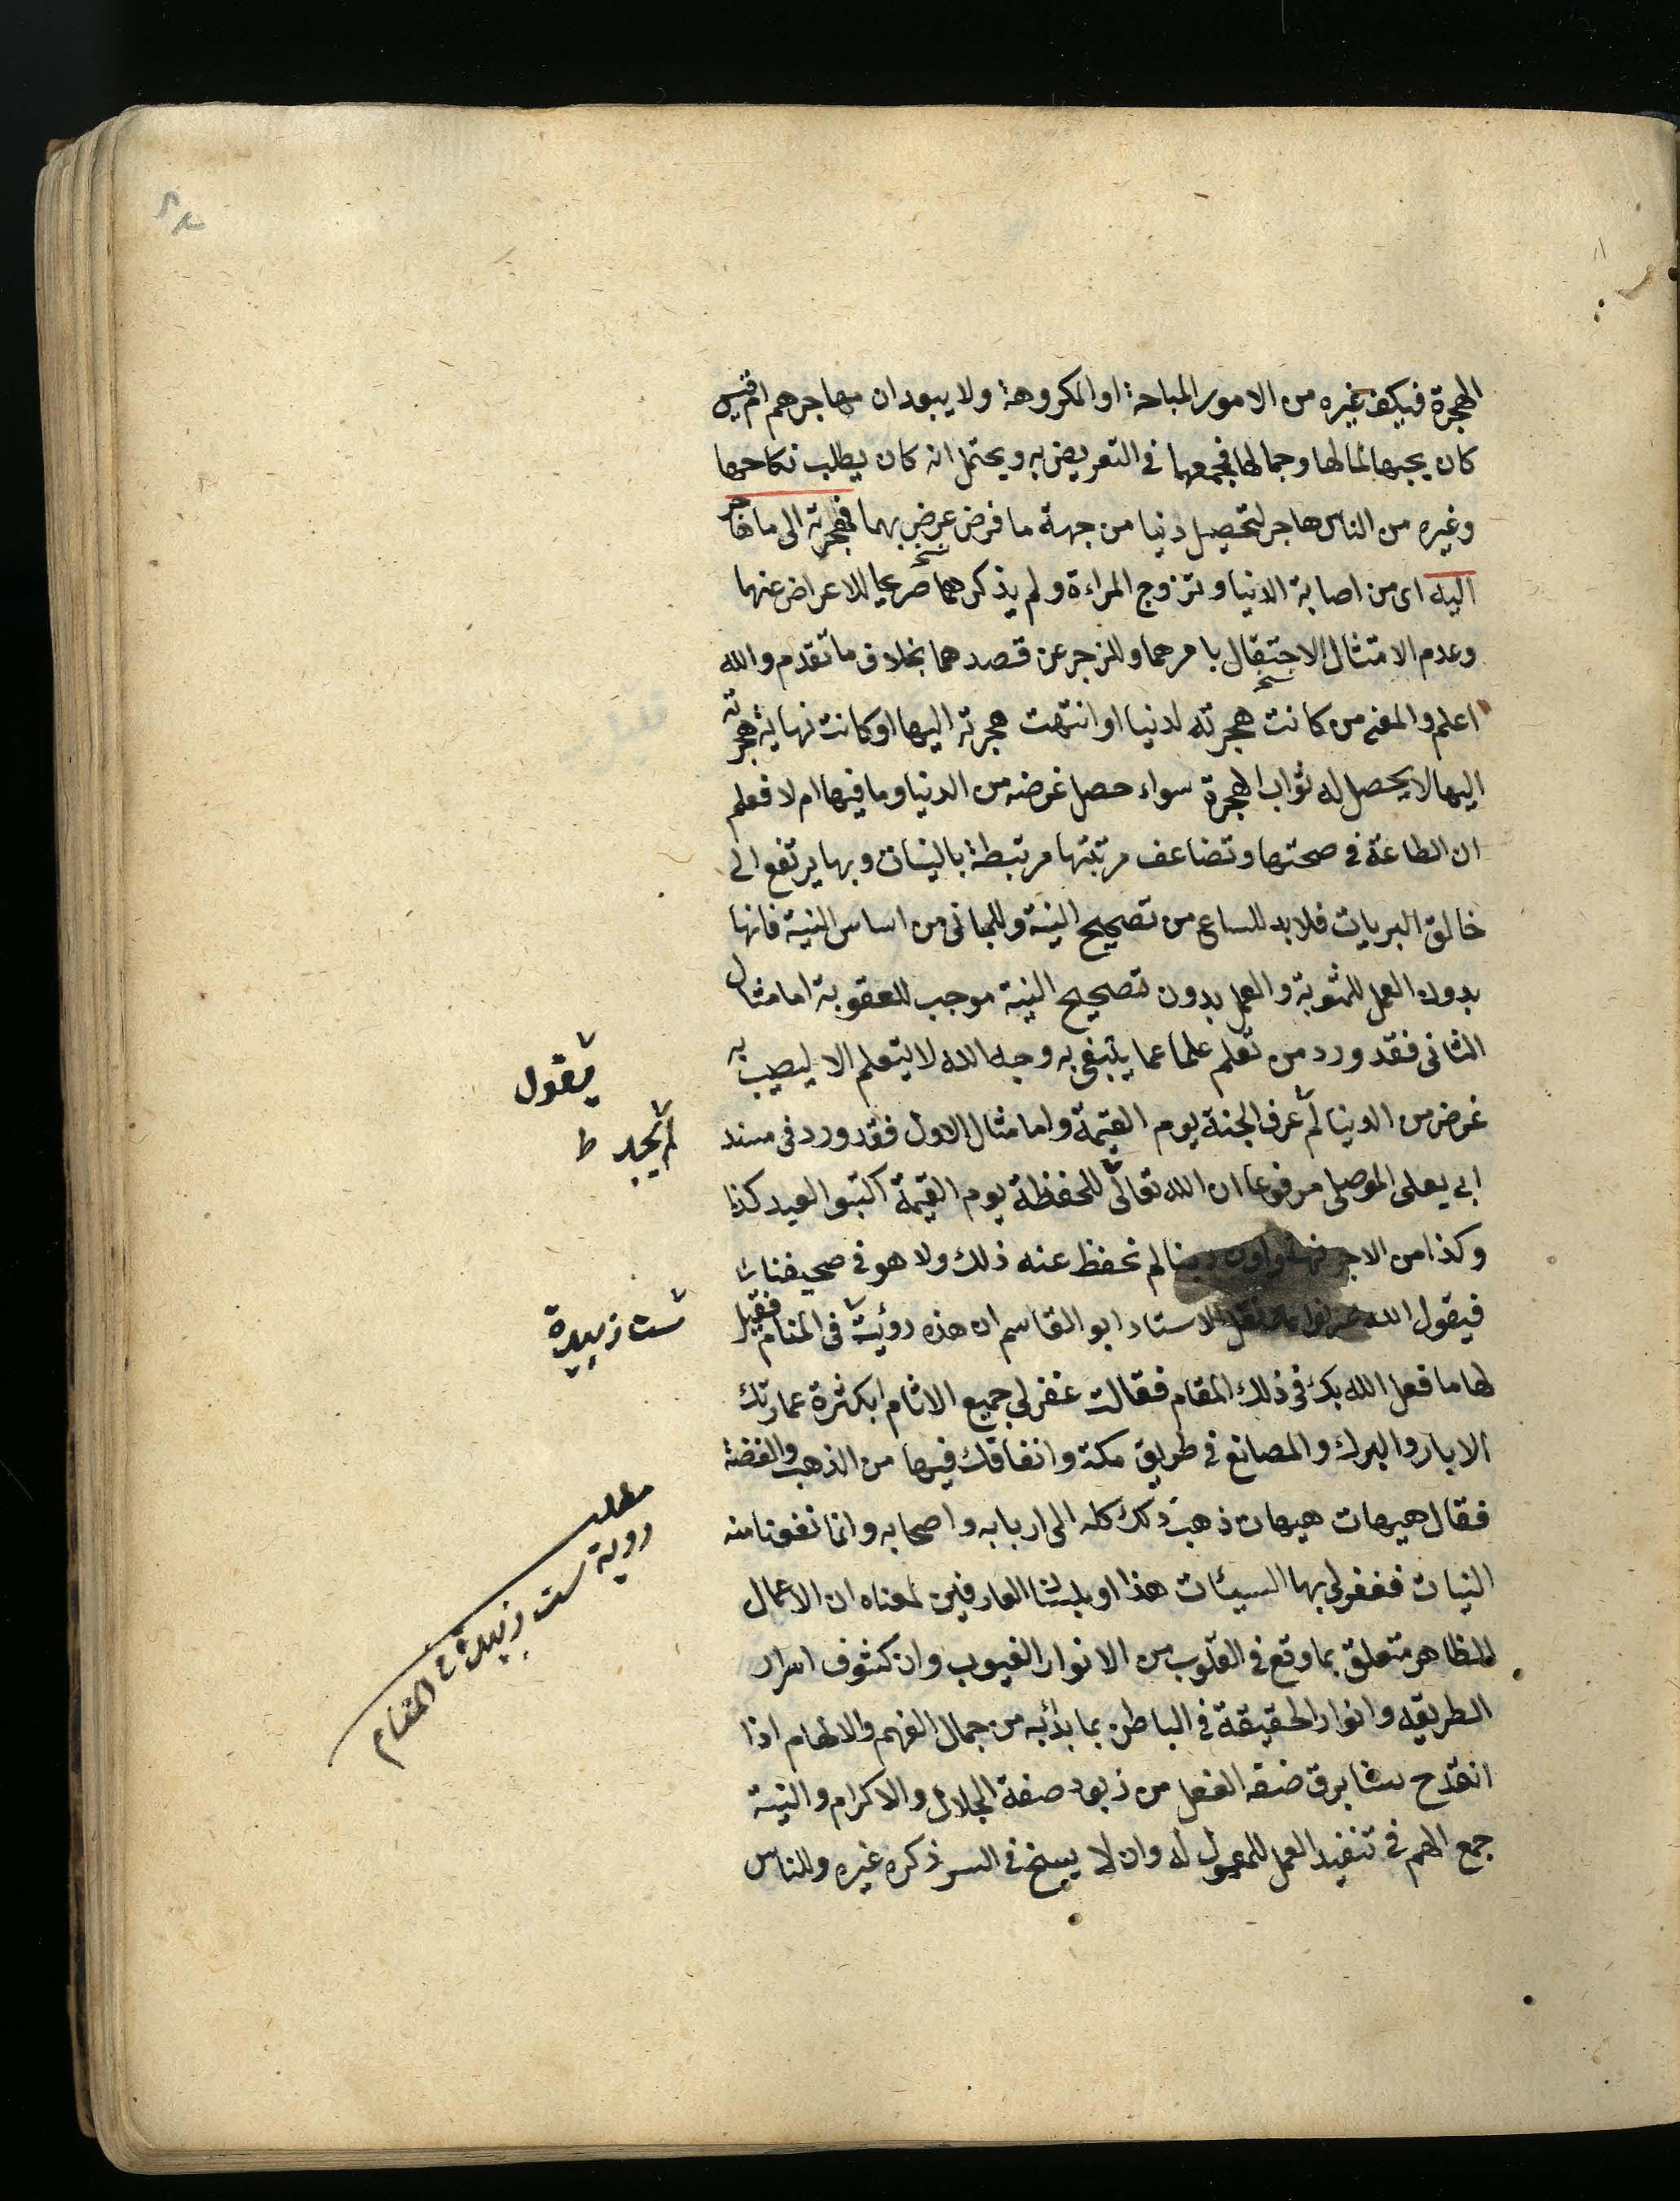 الهجرة فكيف بغيره من الامور المباحة او المكروهة ولا يبعد ان مهاجرهم ام قيس
كان يحبها لمالها وجمالها فجمعهما في التعريض به ويحتمل انه كان يطلب نكاحها
وغيره من الناس هاجر لتحصيل دنيا من جهة ما فرض عرض بهما فهجرته الى ما هاجر
اليه اى من اصابة الدنيا وتزوج المراءة ولم يذكرهما صريحا للاعراض عنهما
وعدم الامتثال الاحتفال بامرهما وللزجر عن قصدهما بخلاف ما تقدم والله
اعلم والمعنى من كانت هجرته لدنيا او انتهت هجرته اليها او كانت نهاية هجرته
اليها لا يحصل له ثواب الهجرة سواء حصل غرضه من الدنيا وما فيها ام لا فعلم
ان الطاعة في صحتها وتضاعف مرتبتها مرتبطة بالنيات وبها يرتفع الى
خالق البريات فلا بد للساعى من تصحيح النية وللبانى من اساس النية فانها
بدون العمل للمثوبة والعمل بدون تصحيح النية موجب للعقوبة اما مثال
الثانى فقد ورد من تعلم علما مما يبتغى به وجه الله لا يتعلم الا ليصيب به
غرض من الدنيا لم عرف الجنة يوم القيمة واما مثال الاول فقد ورد في مسند
ابى يعلى الموصلى مرفوعا ان الله تعالى للحفظة يوم القيمة اكتبوا لعبد كذا
وكذا من الاجر فيقولون ربنا لم نحفظ عنه ذلك ولا هو في صحيفنا
فيقول الله الاستاد ابو القاسم ان هذه رؤيت في المنام فقيل
لها ما فعل الله بك في ذلك المقام فقالت غفر لى جميع الاثام ابكثرة عمارتك
الابار والبرك والمصانع في طريق مكة وانفاقك فيها من الذهب والفضة
فقال هيهات هيهات ذهب ذلك كله الى اربابه واصحابه وانما نفعنا منه
النيات فغفر لى بها السيئات هذا العارفين لمعناه ان الاعمال
للظاهر متعلق بما وقع في القلوب من الانوار الغيوب وان كشوف اسرار
الطريقه وانوار الحقيقة في الباطن بما بدائبه من جمال الفهم والالهام اذا
انقدح برق صفة الفعل من صفة الجلال والاكرام والنية
جمع الهم في تنفيذ العمل للمعمول له وان لا يسنح في السر ذكره غيره وللناس
يقول
لم يجد ط
ست زبيدة
مطلب
روية ست زبيدة في المنام